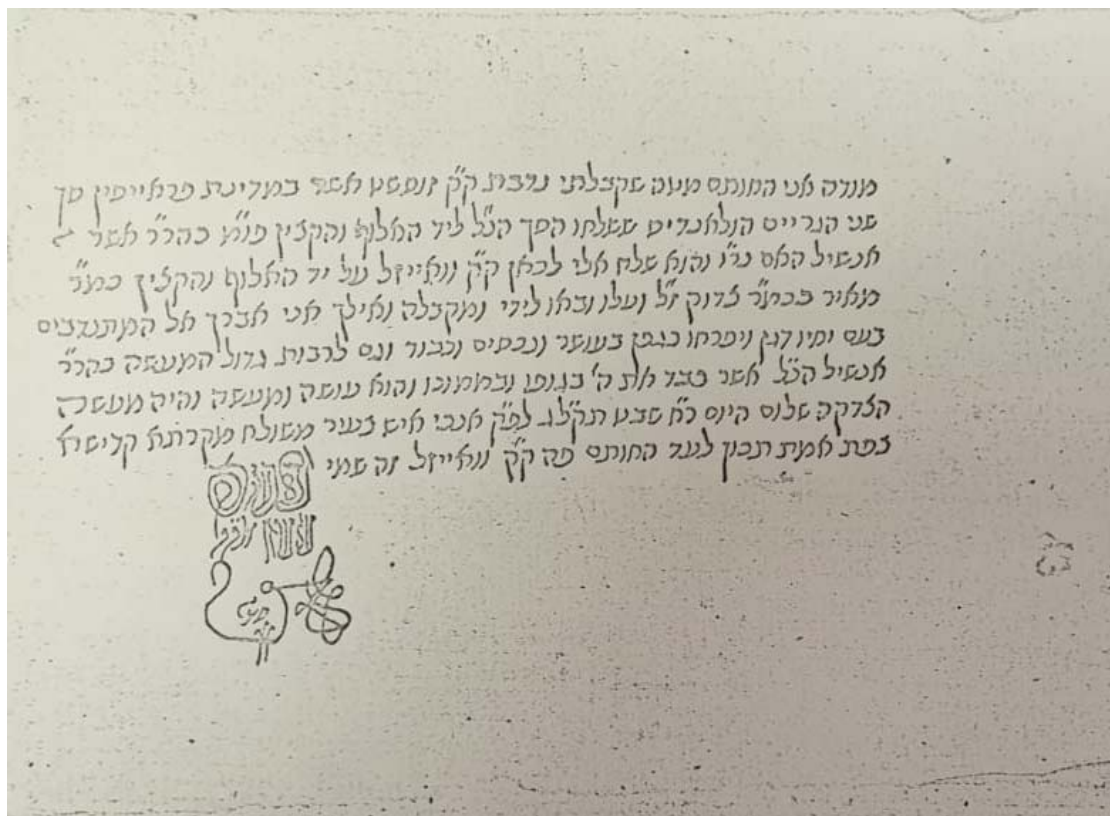 מודה אני החותם מטה שקבלתי נדבת ק"ק אשר במדינת סך
שני הגריים הולאנדים ששלחו הסך הנ"ל ליד האלוף והקצין כהר"ר אשר
אנשיל האס נר"ו והוא שלח אלי לכאן ק"ק ווייזל על יד האלוף והקצין כמ"ר
מאיר בכמ"ר צדוק ז"ל ועלו ובאו לידי ואילך אני אברך אל המתנדבים
בעם ויפרחו כגפן בעושר ונכסים וכבוד וגם לרבות גדול המעשה כהר"ר
אנשיל הנ"ל אשר כבד את ה' בגופו ובממונו והוא עושה ומעשה והיה מעשה
הצדקה שלום היום ר"ח שבט תקל"ג לפ"ק אנכי איש צעיר משולח מקרתא קדישא
צפת אמת תכון לעד החותם פה ק"ק ווייזל זה שמי